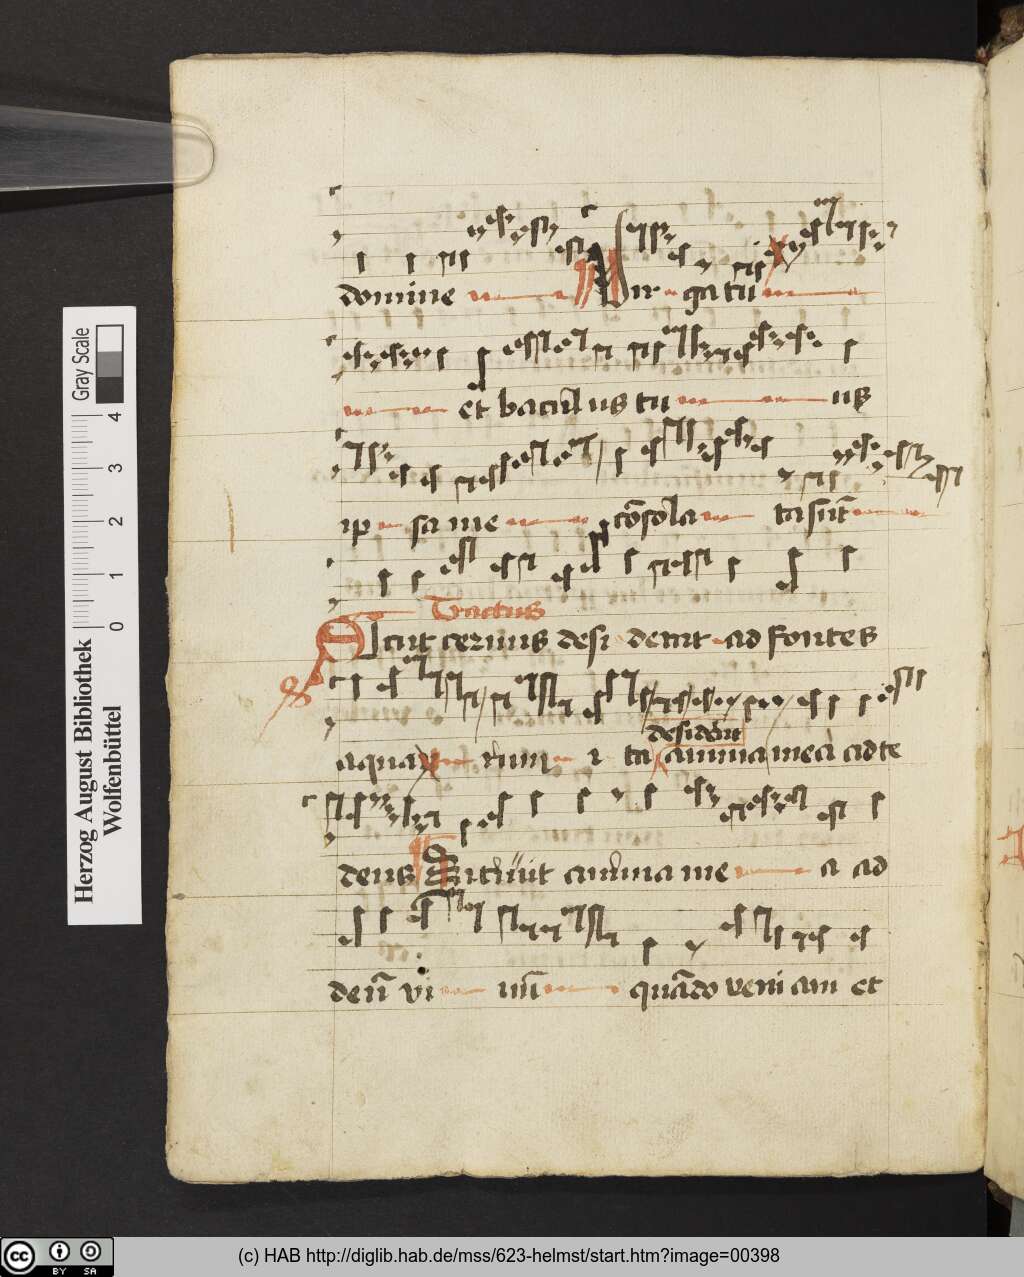 domine Vir ga tu
et baculus tu us
ip sa me cōsola ta sūt
Tractus
Sicut cervus desi derat ad fontes
aqua rum i ta desiderat anima mea ad te
deus Sitivit anima me a ad
deū vi uū quādo veni am et
Gray Scale
0 1 2 3 4
Herzog August Bibliothek
Wolfenbüttel
cc BY SA
(c) HAB http://diglib.hab.de/mss/623-helmst/start.htm?image=00398